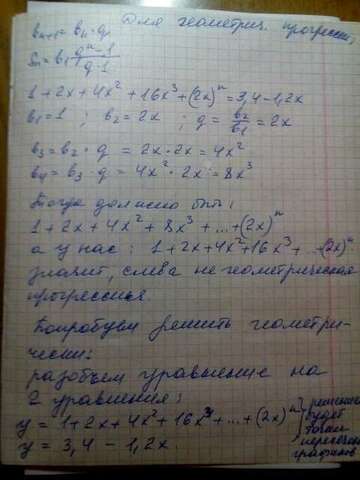 Для геометрич. прогрессии
bₙ₊₁ = bₙ · q
Sₙ = b₁ (qⁿ - 1)/(q - 1)
1 + 2x + 4x² + 16x³ + (2x)ⁿ = 3,4 - 1,2x
b₁ = 1 ; b₂ = 2x ; q = b₂/b₁ = 2x
b₃ = b₂ · q = 2x · 2x = 4x²
b₄ = b₃ · q = 4x² · 2x = 8x³
Тогда должно быть:
1 + 2x + 4x² + 8x³ + ... + (2x)ⁿ
а у нас: 1 + 2x + 4x² + 16x³ + ... + (2x)ⁿ
значит, слева не геометрическая
прогрессия.
Попробуем решить геометри-
чески:
разобьем уравнение на
2 уравнения:
y = 1 + 2x + 4x² + 16x³ + ... + (2x)ⁿ
y = 3,4 - 1,2x.
решением
будет
точка
пересечен.
графиков